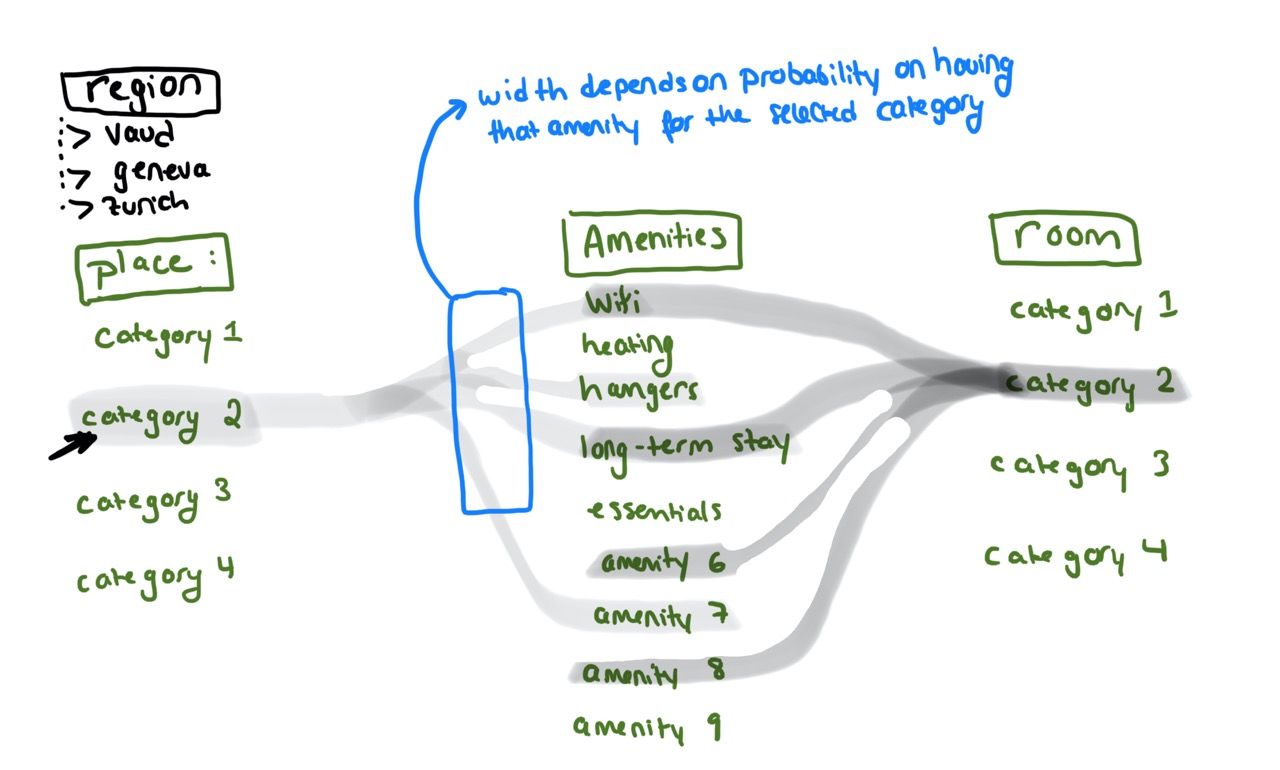 region
> vaud
> geneva
> zurich
width depends on probability on having
that amenity for the selected category
place:
category 1
category 2
category 3
category 4
Amenities
Wifi
heating
hangers
long-term stay
essentials
amenity 6
amenity 7
amenity 8
amenity 9
room
category 1
category 2
category 3
category 4